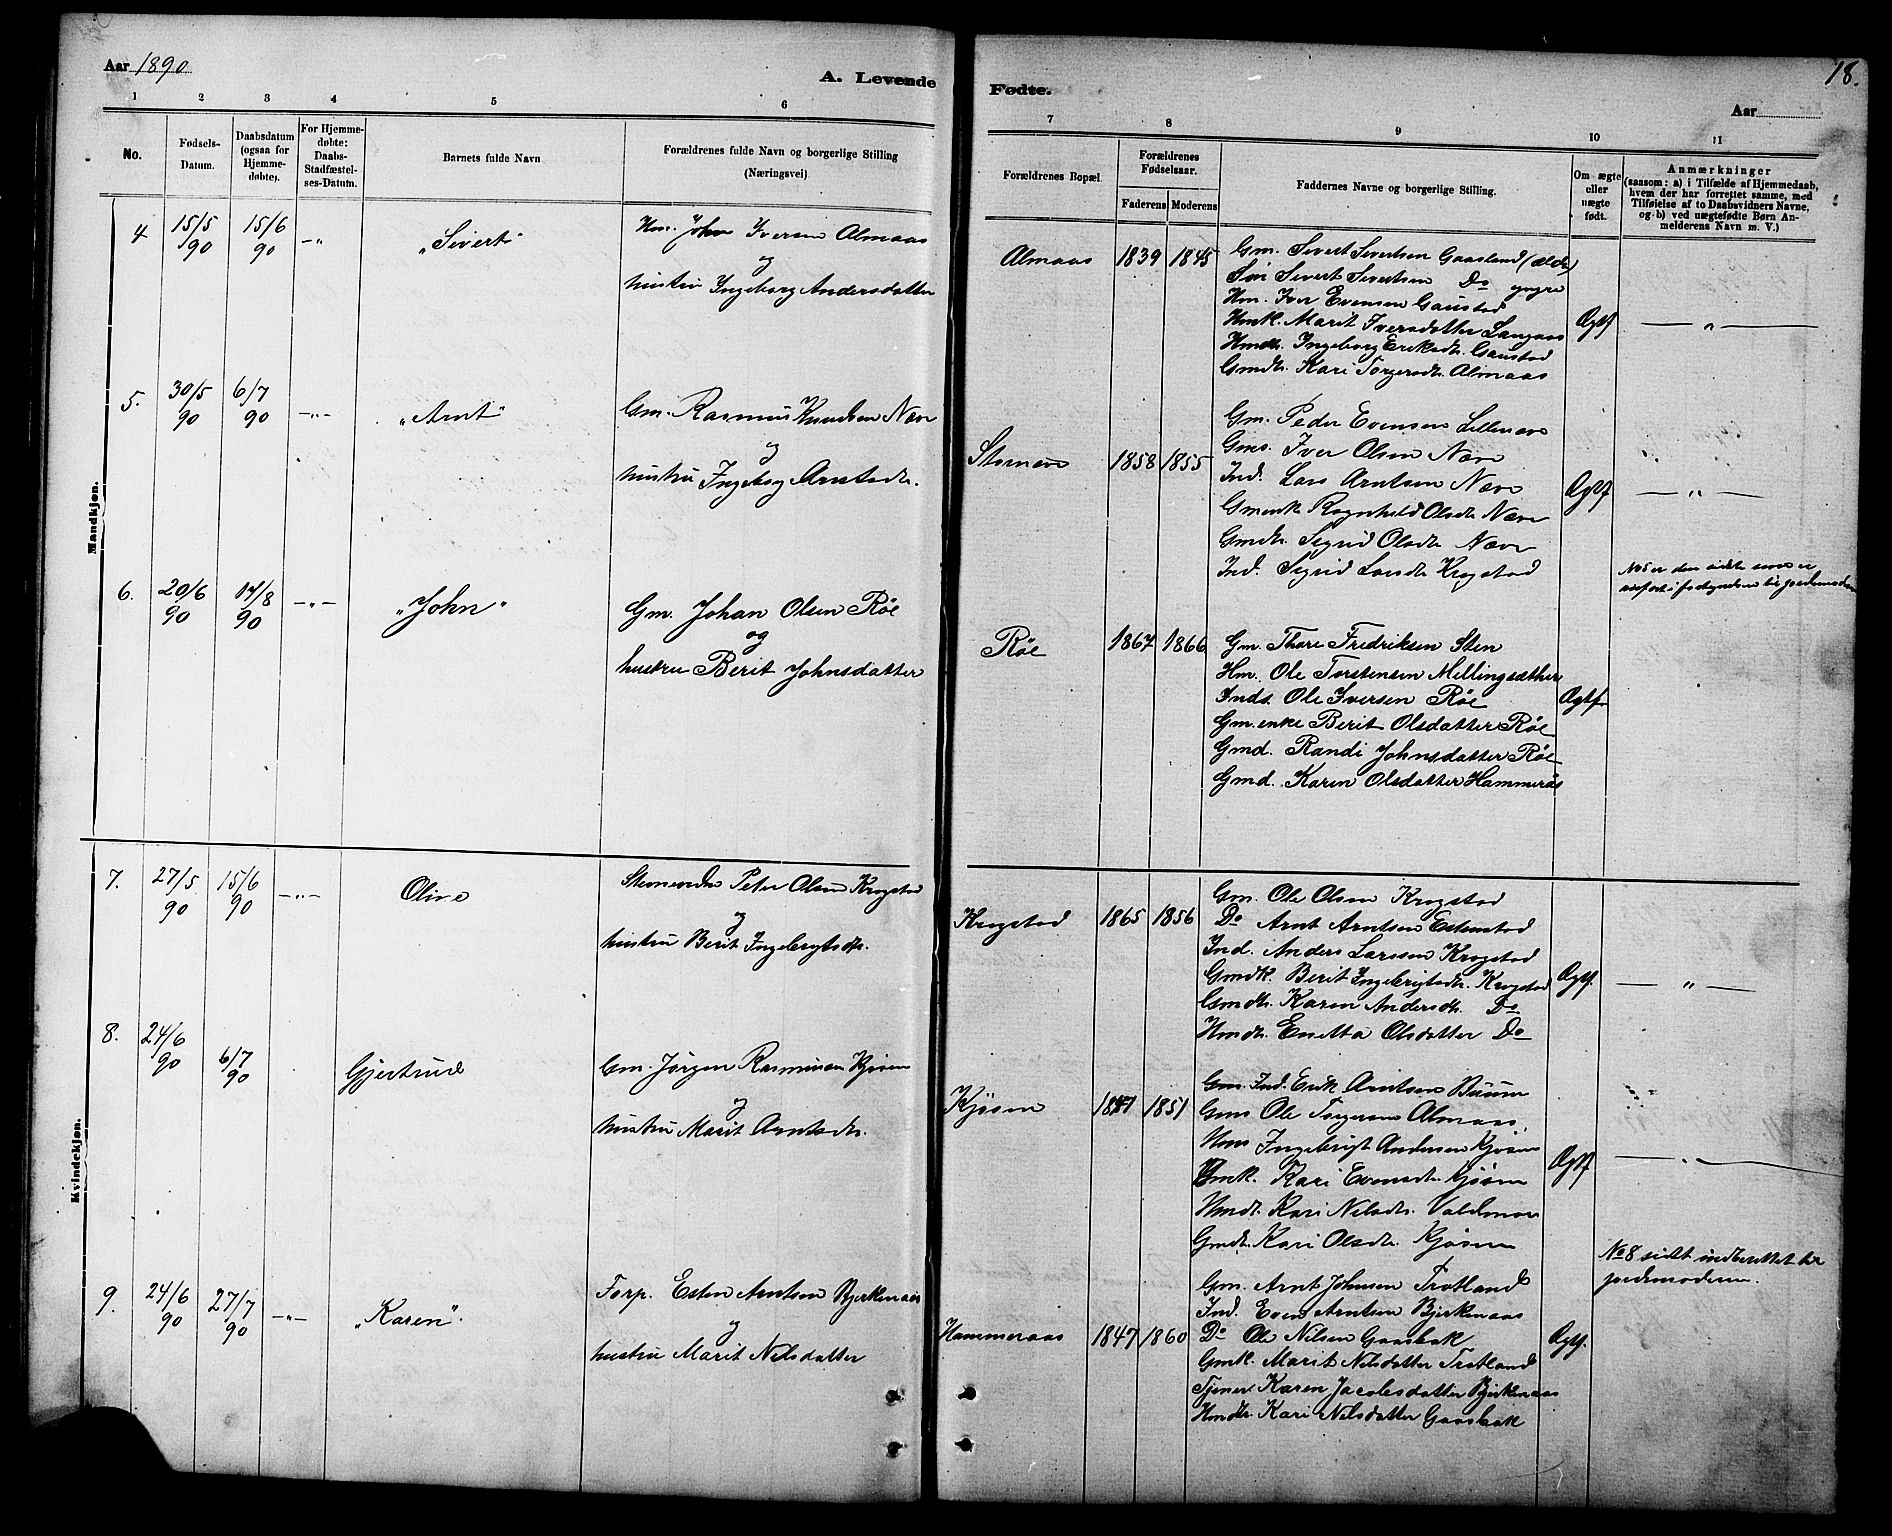 Aar 1890
A. Levende
Fødte.
18.
Aar
1 2 3 4 5 6 7 8 9 10 11
No.
Fødsels-
Datum.
Daabsdatum
(ogsaa for
Hjemme-
døbte).
For Hjemme-
døbte:
Daabs-
Stadfæstel-
ses-Datum.
Barnets fulde Navn
Forældrenes fulde Navn og borgerlige Stilling
(Næringsvei)
Forældrenes Bopæl.
Forældrenes
Fødselsaar.
Faderens Moderens
Faddernes Navne og borgerlige Stilling.
Om ægte
eller
uægte
født.
Anmærkninger
(saasom: a) i Tilfælde af Hjemmedaab,
hvem der har forrettet samme, med
Tilføielse af to Daabsvidners Navne,
og b) ved uægtefødte Børn An-
melderens Navn m. V.)
Mandkjøn.
4 15/5 90 15/6 90 —„ „Sivert“
Hm. John Iversen Almaas
og
hustru Ingeborg Andersdatter
Almaas 1839 1845
Gm. Sivert Sivertsen Gaasland (ældr)
Søn Sivert Sivertsen Do yngre
Hm. Iver Evensen Gaustad
Hmk. Marit Iversdatter Langaas
Hmdt. Ingeborg Eriksdt. Gaustad
Gmdt. Kari Torgersdt. Almaas
Ægtf — „ —
5. 30/5 90 6/7 90 —„— „Arnt“
Gm. Rasmus Knudsen Næve
og
hustru Ingebog Arntsdt.
Stornæve 1858 1855
Gm. Peder Evensen Lillenæve
Gms. Iver Olsen Næve
Ind. Lars Arntsen Næve
Gmenk Ragnhild Olsdt. Næve
Gmdt. Sigrid Olsdt. Næve
Ind. Sigrid Larsdt. Krogstad
Ægtf — „ —
No 5 er den sidste som er
anført i fortegnelsen til jordemoderen
6. 20/6 90 14/8 90 —„— „John“
Gm. Johan Olsen Røe
og
hustru Berit Johnsdatter
Røe 1867 1866
Gm. Thore Fredriksen Sten
Hm. Ole Torstensen Millingsæther
Inds. Ole Iversen Røe
Gm.enke Berit Olsdatter Røe
Gmd. Randi Johnsdatter Røe
Gmd. Karen Olsdatter Hammerås
Ægtf.
Kvindekjøn.
7. 27/5 90 15/6 90 —„— Olive
Peter Olsen Krogstad
og
hustru Berit Ingebrigtsdt.
Krogstad 1865 1856
Gm. Ole Olsen Krogstad
Do Arnt Arntsen Estenstad
Ind. Anders Larssen Krogstad
Gmdk. Berit Ingebrigtsdt. Krogstad
Gmdt. Karen Andersdt. Do
Hmdt. Enetta Olsdatter Do
Ægtf. — „ —
8. 24/6 90 6/7 90 Gjertrud
Gm. Jørgen Rasmussen Kjøsen
og
hustru Marit Arntsdt.
Kjøsen 1851
Gm. Ind. Erik Arntsen Buum
Gms Ole Torgersen Almaas
Hms Ingebrigt Andersen Kjøsen
Gmk. Kari Evensdt. Kjøsen
Hmdt. Kari Nilsdt. Valdmoe
Gmdt. Kari Olsdt. Kjøsen
Ægtf — „ —
No 8 sidst indberettet til
jordemoderen.
9. 24/6 90 27/7 90 —„— „Karen“.
Forp. Esten Arntsen Bjerkenaas
og
hustru Marit Nilsdatter
Hammeraas 1847 1860
Gm. Arnt Johnsen Trotland
Ind. Even Arntsen Bjerkenaas
Do Ole Nilsen Gaasbak
Gmk. Marit Nilsdatter Trotland
Tjener Karen Jacobsdatter Bjerkenaas
Hmdt. Kari Nilsdatter Gaasbak
Ægtf.